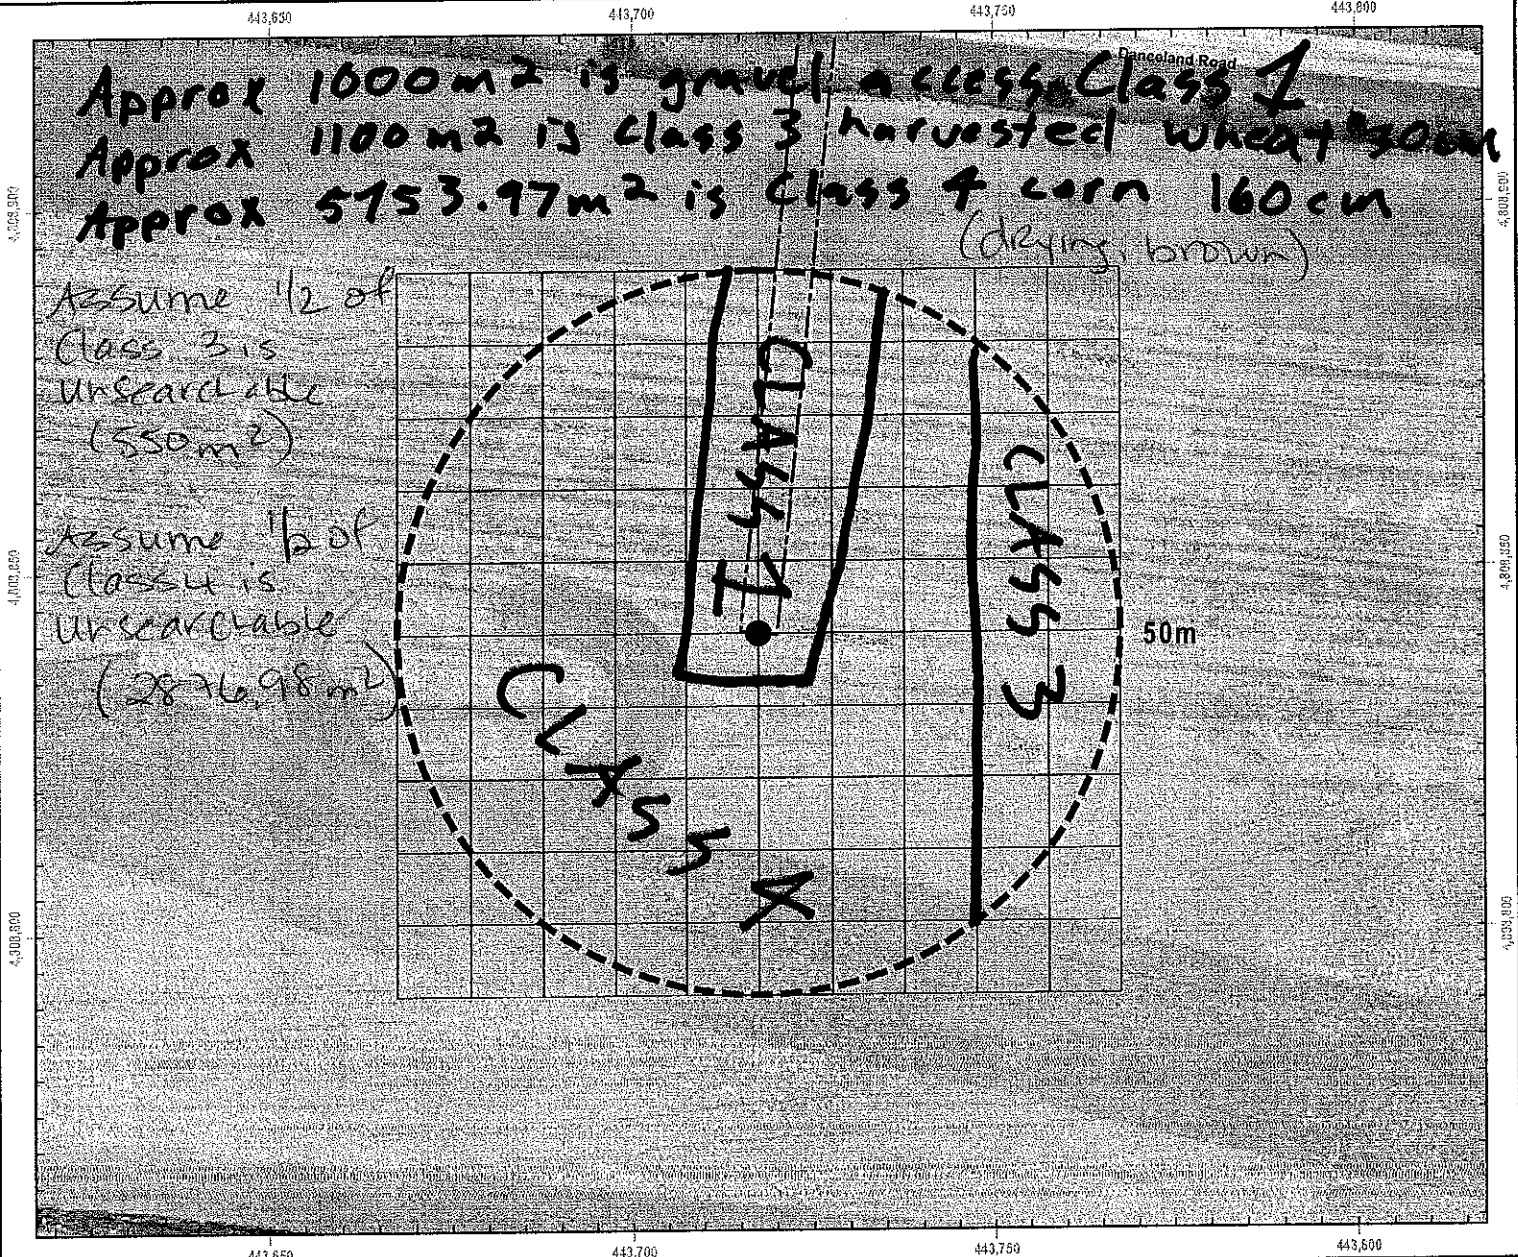 443,650 443,700 443,750 443,800
Danceland Road
Approx 1000m2 is gravel access Class 1
Approx 1100m2 is class 3 harvested wheat 30cm
Approx 5753.97m2 is Class 4 corn 160cm
(drying, brown)
Assume 1/2 of
Class 3 is
unsearchable
(550m²)
Assume 1/2 of
Class 4 is
unsearchable
(2876.98m²)
CLASS 1
CLASS 3
CLASS 4
50m
443,650 443,700 443,750 443,800